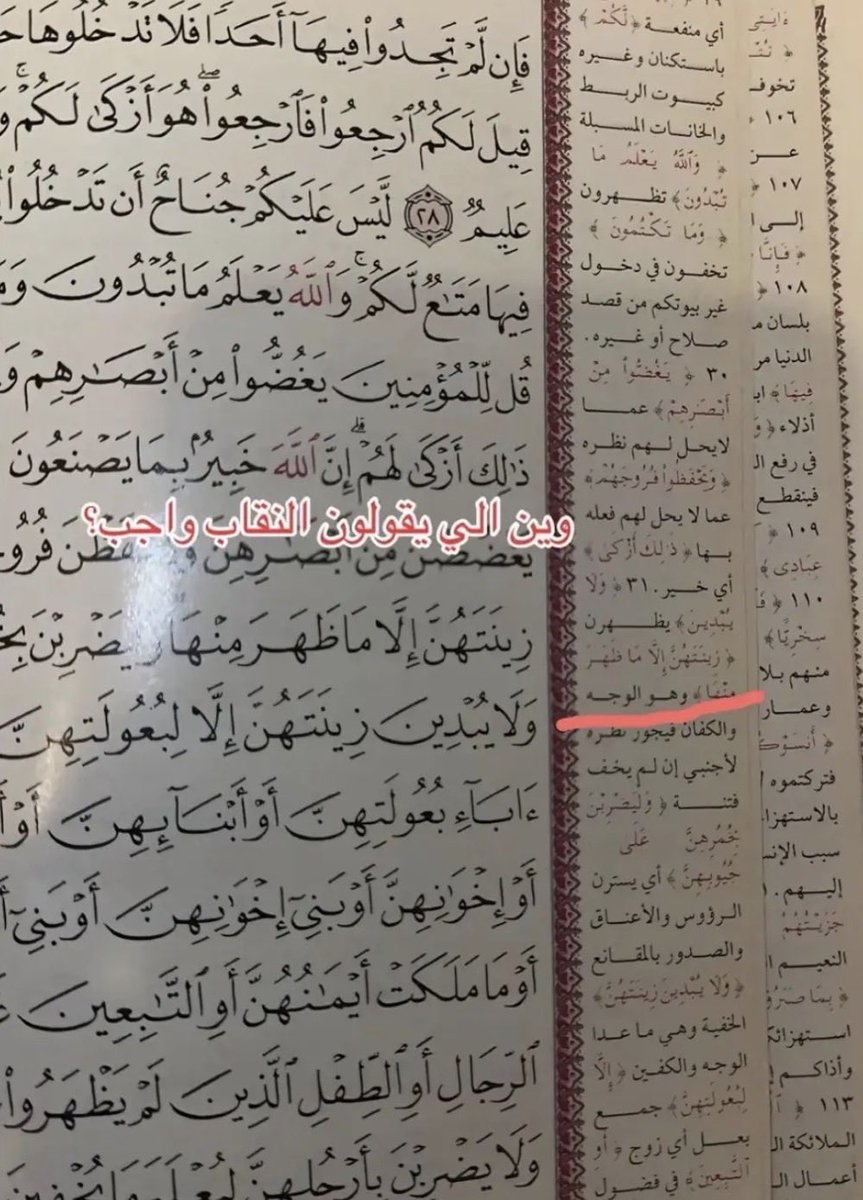 فَإِن لَّمْ تَجِدُوا۟ فِيهَآ أَحَدًا فَلَا تَدْخُلُوهَا
قِيلَ لَكُمُ ٱرْجِعُوا۟ فَٱرْجِعُوا۟ ۖ هُوَ أَزْكَىٰ لَكُمْ ۚ
عَلِيمٌ ٢٨ لَّيْسَ عَلَيْكُمْ جُنَاحٌ أَن تَدْخُلُوا۟
فِيهَا مَتَـٰعٌ لَّكُمْ ۚ وَٱللَّهُ يَعْلَمُ مَا تُبْدُونَ
قُل لِّلْمُؤْمِنِينَ يَغُضُّوا۟ مِنْ أَبْصَـٰرِهِمْ
ذَٰلِكَ أَزْكَىٰ لَهُمْ ۗ إِنَّ ٱللَّهَ خَبِيرٌۢ بِمَا يَصْنَعُونَ
وين الي يقولون النقاب واجب؟
يَغْضُضْنَ مِنْ أَبْصَـٰرِهِنَّ
زِينَتَهُنَّ إِلَّا مَا ظَهَرَ مِنْهَا
وَلَا يُبْدِينَ زِينَتَهُنَّ إِلَّا لِبُعُولَتِهِنَّ
ءَابَآءِ بُعُولَتِهِنَّ أَوْ أَبْنَآئِهِنَّ
أَوْ إِخْوَٰنِهِنَّ أَوْ بَنِىٓ إِخْوَٰنِهِنَّ أَوْ بَنِىٓ
أَوْ مَا مَلَكَتْ أَيْمَـٰنُهُنَّ أَوِ ٱلتَّـٰبِعِينَ
ٱلرِّجَالِ أَوِ ٱلطِّفْلِ ٱلَّذِينَ لَمْ يَظْهَرُوا۟
وَلَا يَضْرِبْنَ بِأَرْجُلِهِنَّ لِيُعْلَمَ مَا يُخْفِينَ
أي منفعة ﴿لَّكُمْ﴾
باستكنان وغيره
كبيوت الربط
والخانات المسبلة
﴿وَٱللَّهُ يَعْلَمُ مَا
تُبْدُونَ﴾ تظهرون
﴿وَمَا تَكْتُمُونَ﴾
تخفون في دخول
غير بيوتكم من قصد
صلاح أو غيره.
٣٠ ﴿يَغُضُّوا۟ مِنْ
أَبْصَـٰرِهِمْ﴾ عمـا
لا يحل لهم نظره
﴿وَيَحْفَظُوا۟ فُرُوجَهُمْ﴾
عما لا يحل لهم فعله
بها ﴿ذَٰلِكَ أَزْكَىٰ﴾
أي خير. ٣١ ﴿وَلَا
يُبْدِينَ﴾ يظهرن
﴿زِينَتَهُنَّ إِلَّا مَا ظَهَرَ
مِنْهَا﴾ وهو الوجه
والكفان فيجوز نظره
لأجنبي إن لم يخف
فتنة ﴿وَلْيَضْرِبْنَ
بِخُمُرِهِنَّ عَلَىٰ
جُيُوبِهِنَّ﴾ أي يسترن
الرؤوس والأعناق
والصدور بالمقانع
﴿وَلَا يُبْدِينَ زِينَتَهُنَّ﴾
الخفية وهي ما عدا
الوجه والكفين ﴿إِلَّا
لِبُعُولَتِهِنَّ﴾ جمع
بعل أي زوج ﴿أَوِ
ٱلتَّـٰبِعِينَ﴾ في فضول
تخوف
١٠٦
عـن
١٠٧
إلى
١٠٨
بلسان
الدنيا
فِيهَا﴾
أذلاء
في رفع
فينقطع
١٠٩
عِبَادِى﴾
١١٠
سِخْرِيًّا﴾
منهم
وعمار
فتركتموه
بالاستهزا
سبب
إليهم.
جَزَيْتُهُمُ
النعيم
استهزائكم
وأذاكم
١١٣
الملائكة
أعمال